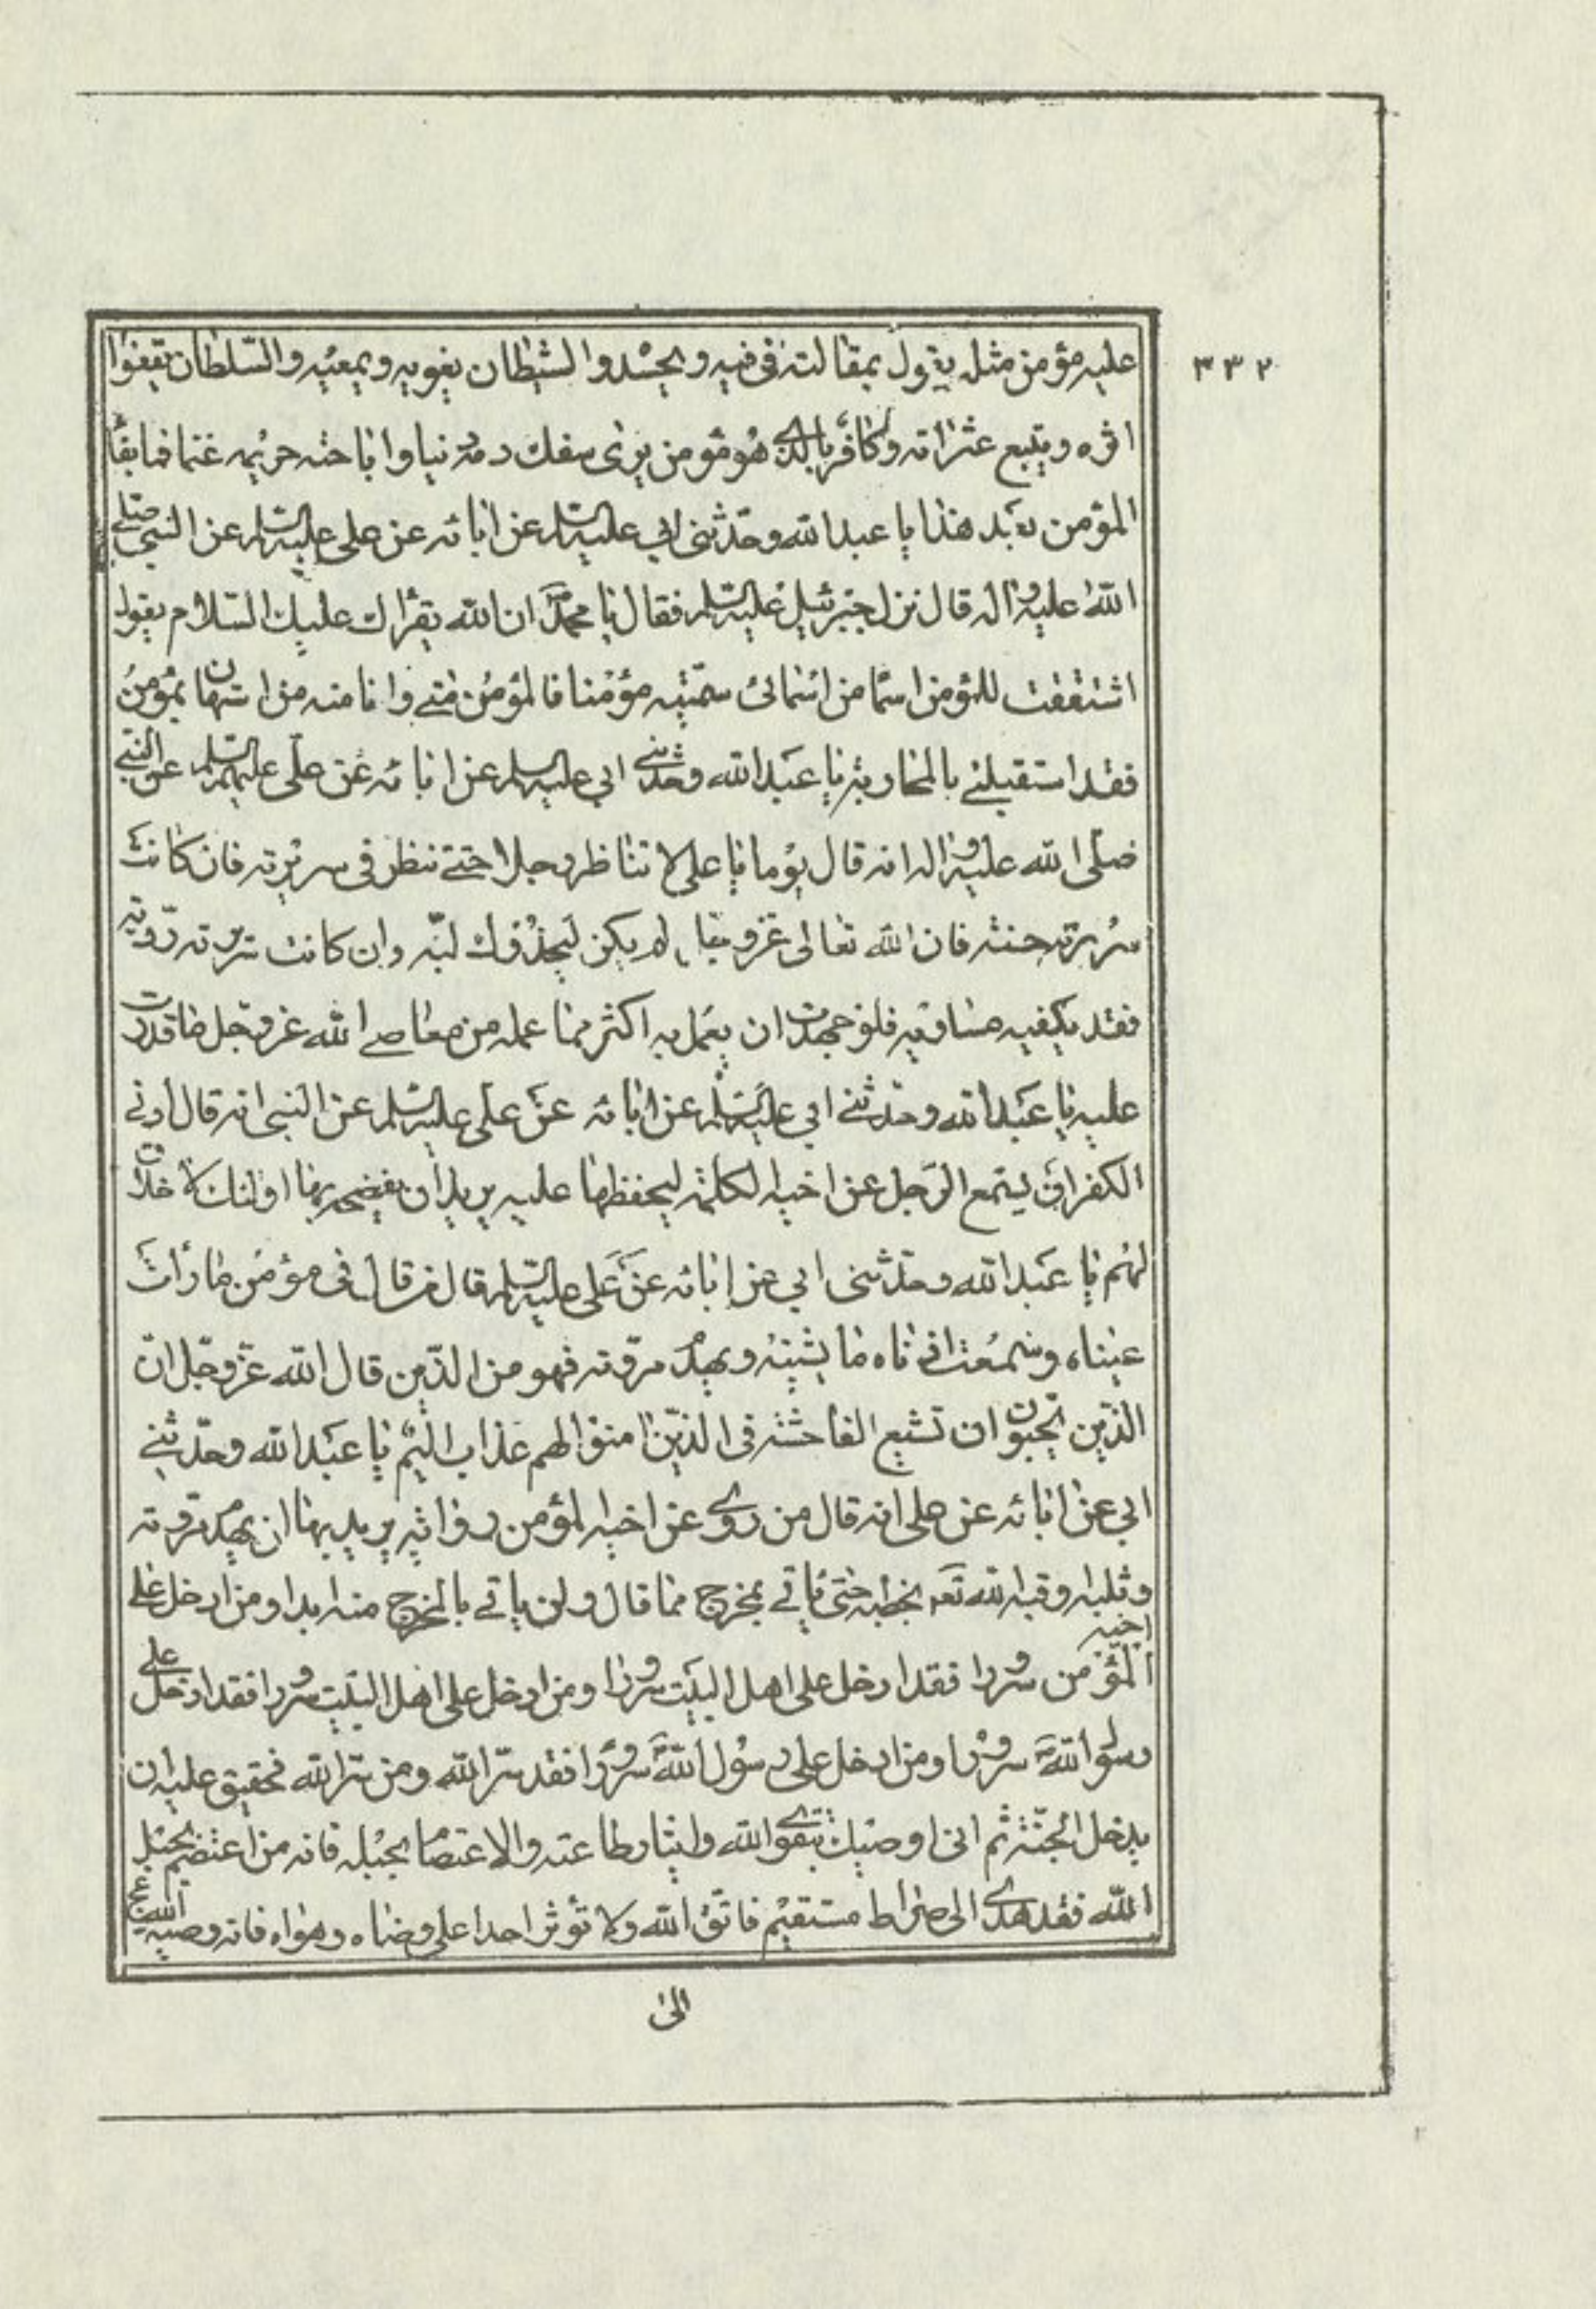 ٣٣٢
عليه مؤمن مثله يقول بمقالته في فيه ويحسده والشيطان يغويه ويمعيه والسلطان يقفوا
اثره ويتبع عثراته وكافر بالذي هو مؤمن يرى سفك دمه دنيا واباحة حريمه غنما فما بقأ
المؤمن بعد هذا يا عبدالله وحدثني ابي عليه السلم عن ابائه عن علي عليه السلم عن النبي صلى
الله عليه واله قال نزل جبرئيل عليه السلم فقال يا محمد ان الله يقرأ ك عليك السلام يقول
اشتققت للمؤمن اسما من اسمائى سميته مؤمنا فالمؤمن منى وانا منه من استهان بمؤمن
فقد استقبلنى بالمحاربة يا عبدالله وحدثني ابي عليه السلم عن ابائه عن على عليهم السلم عن النبي
صلى الله عليه واله انه قال يوما يا على لا تناظر رجلا حتى تنظر في سريرته فان كانت
سريرته حسنة فان الله تعالى عز وجل لم يكن ليخذل وليه وان كانت سريرته رديه
فقد يكفيه مساويه فلو جهدت ان يعمل به اكثر مما عمله من معاصى الله عز وجل ما قدرت
عليه يا عبدالله وحدثنى ابي عليه السلم عن ابائه عن على عليه السلم عن النبي انه قال ادنى
الكفر ان يستمع الرجل عن اخيه الكلمة ليحفظها عليه يريد ان يفضحه بها اولئك لا خلاق
لهم يا عبدالله وحدثني ابي عن ابائه عن على عليه السلم قال من قال في مؤمن ما رأت
عيناه وسمعت اذناه ما يشينه ويهدم مروته فهو من الذين قال الله عز وجل ان
الذين يحبون ان تشيع الفاحشة في الذين امنوا لهم عذاب اليم يا عبدالله وحدثنى
ابي عن ابائه عن على انه قال من روى عن اخيه المؤمن رواية يريد بها ان يهدم مروته
وثلبه وقبه الله تعـ بخطيه حتى ياتى بمخرج مما قال ولن ياتى بالمخرج منه ابدا ومن ادخل على
اخيه
المؤمن سرورا فقد ادخل على اهل البيت سرورا ومن ادخل على اهل البيت سرورا فقد ادخل على
رسول الله سرورا ومن ادخل على رسول الله سرورا فقد سر الله ومن سر الله فحقيق عليه ان
يدخل الجنة ثم انى اوصيك بتقوى الله وايثار طاعته والاعتصام بحبله فانه من اعتصم بحبل
الله فقد هدى الى صراط مستقيم فاتق الله ولا تؤثر احدا على رضاه وهواه فانه وصية الله عز
الى